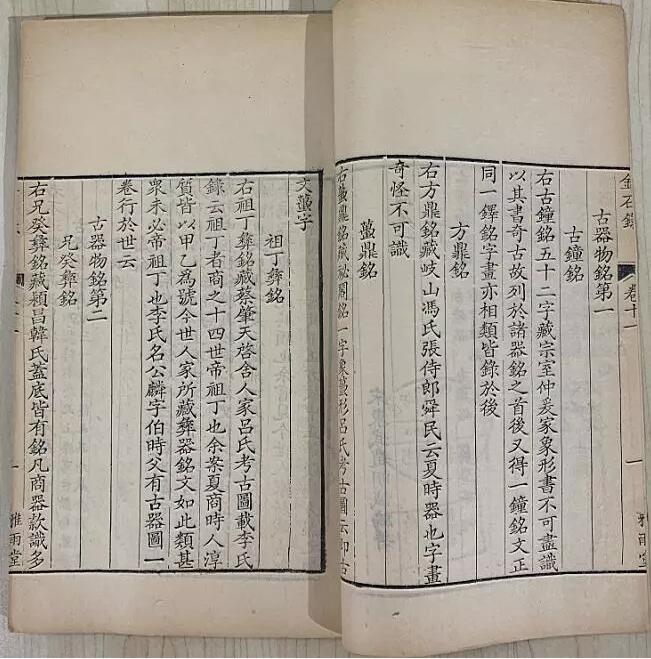 金石錄 卷十一 雅雨堂
古器物銘第一
古鐘銘
右古鐘銘五十二字藏宗室仲爰家象形書不可盡識
以其書奇古故列於諸器銘之首後又得一鐘銘文正
同一鐸銘字畫亦相類皆錄於後
方鼎銘
右方鼎銘藏岐山馮氏張侍郎舜民云夏時器也字畫
奇怪不可識
蠆鼎銘
右蠆鼎銘藏祕閣銘一字象蠆形呂氏考古圖云即古
文蠆字
祖丁彝銘
右祖丁彝銘藏蔡肇天啓舍人家呂氏考古圖載李氏
錄云祖丁者商之十四世帝祖丁也余案夏商時人淳
質皆以甲乙為號今世人家所藏彝器銘文如此類甚
眾未必帝祖丁也李氏名公麟字伯時父有古器圖一
卷行於世云
古器物銘第二
兄癸彝銘
右兄癸彝銘藏潁昌韓氏蓋底皆有銘凡商器款識多
一 雅雨堂